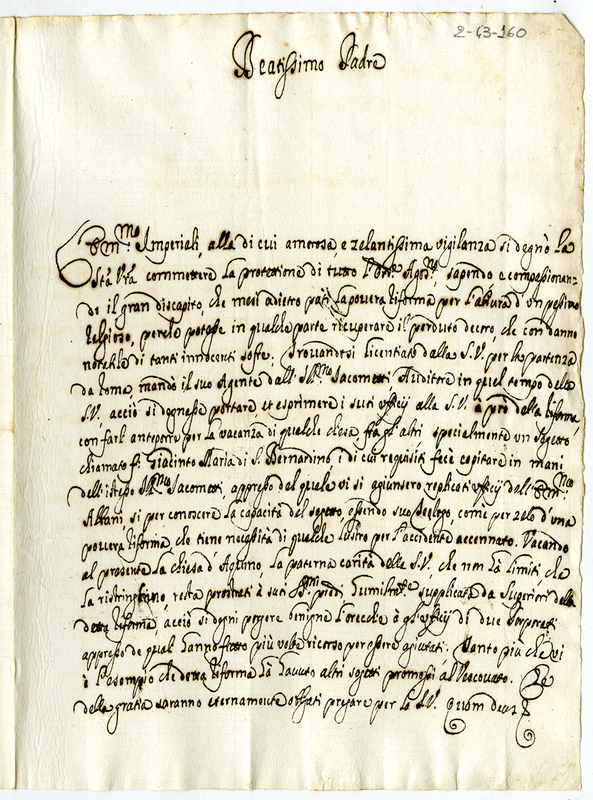 2-63-160
Beatissimo Padre
Emmo. Imperiali, alla di cui amorosa, e zelantissima vigilanza si degnò la
Stà Vrà commettere la protettione di tutto l'Ordne Agostno, sapendo e compassionan-
do il gran discapito, che mesi adietro patì la povera riforma per l'abiura d'un pessimo
religioso, perche potesse in qualche parte ricuperare il perduto decoro, che con danno
notabile di tanti innocenti soffre; Trovandosi licentiato dalla S.V. per la partenza
da Roma mandò il suo Agente dall'Illmo Jacometti Auditore in quel tempo della
S.V. acciò si degnasse portare et esprimere i suoi ufficij alla S.V. à prò della riforma,
con farli anteporre per la vacanza di qualche chiesa frà gl'altri specialmente un sogetto
chiamato fr. Giacinto Maria di S. Bernardino, i di cui requisiti fece capitare in mani
dell'istesso Illmo Jacometti, appresso del quale vi si agiunsero replicati ufficij dell'Emmo
Albani, si per conoscere la capacità del sogetto, essendo suo Teologo, come per zelo d'una
povera riforma, che tiene necessità di qualche lustro per l'accidente accennato. Vacando
al presente la chiesa d'Aquino, la paterna carità della S.V., che non hà limiti, che
la ristringhino, resta prostrati à suoi SSmi piedi humilmte supplicata da Superiori della
detta riforma, acciò si degni porgere benigne l'orecchie à gl'ufficij di due Porporati
appresso de quali hanno fatto più volte ricorso per essere agiutati; Tanto più che vi
è l'esempio che detta riforma hà havuto altri sogetti promossi al Vescovato. Che
della gratia saranno eternamente obligati pregare per la S.V. Quam Deus &